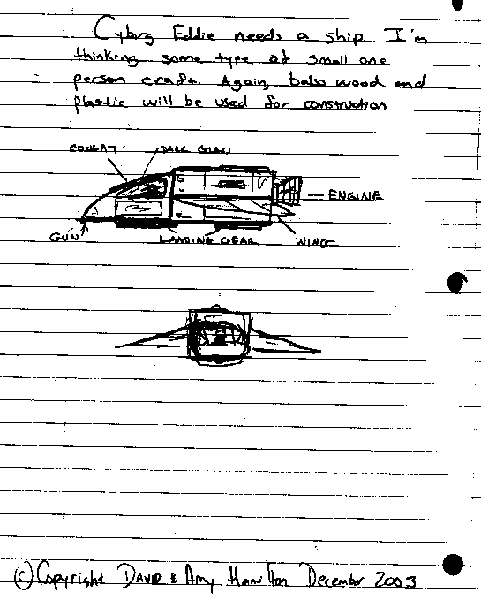 Cyborg Eddie needs a ship. I'm
thinking some type of small one
person craft. Again balsa wood and
plastic will be used for construction
COCKPIT DARK GLASS
ENGINE
GUN LANDING GEAR WING
©Copyright DAVID & Amy Hamilton December 2003